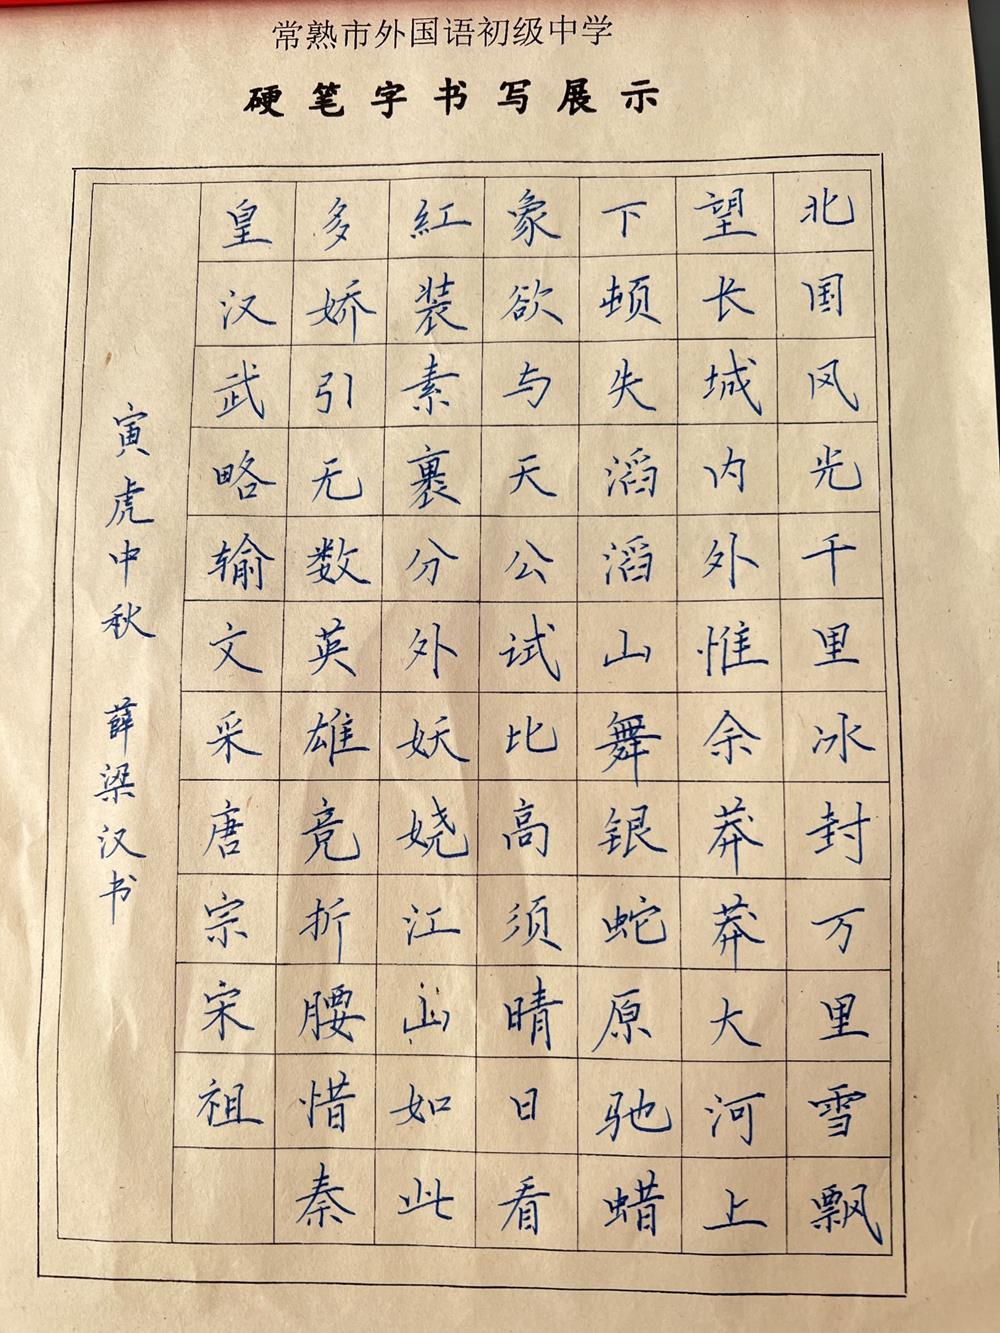 常熟市外国语初级中学
硬笔字书写展示
北国风光千里冰封万里雪飘
望长城内外惟余莽莽大河上
下顿失滔滔山舞银蛇原驰蜡
象欲与天公试比高须晴日看
紅装素裹分外妖娆江山如此
多娇引无数英雄竞折腰惜秦
皇汉武略输文采唐宗宋祖
寅虎中秋 薛梁汉书